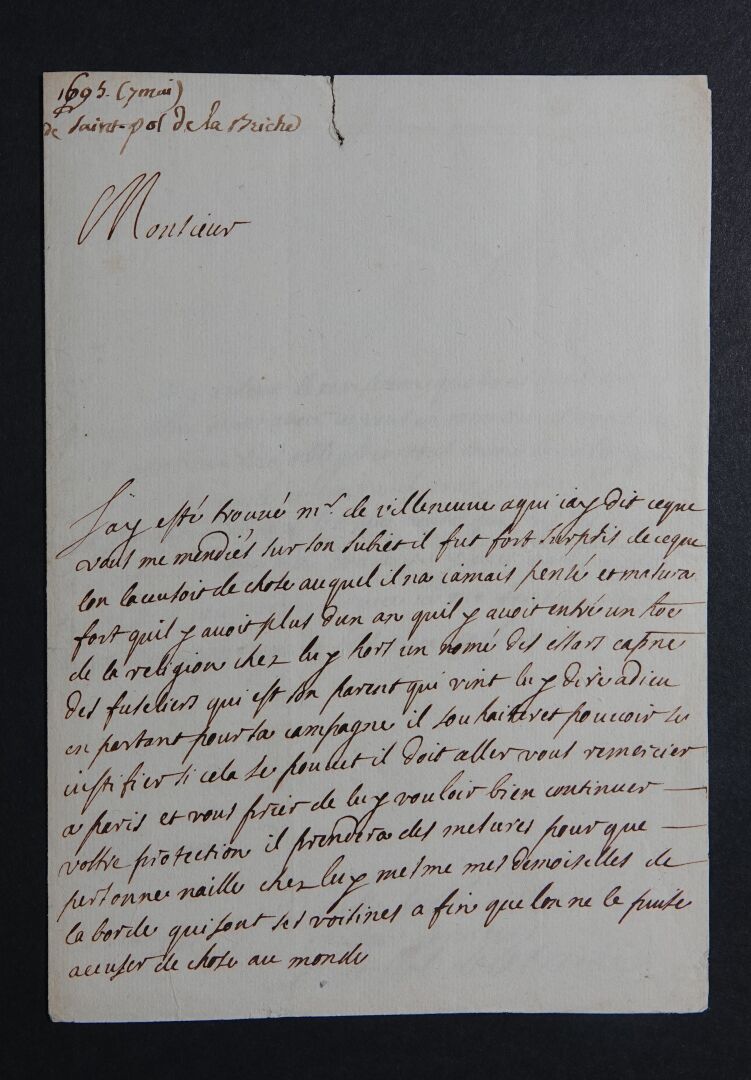 1695. (7 mai)
de Saint-pol de la Briche
Monsieur
J'ay esté trouvé mr. de villeneuve aqui iay dit ceque
vous me mendiés sur son subiet il fut fort surpris de ceque
lon lacusoit de chose auquel il na iamais pensé et masura
fort quil y avoit plus dun an quil y avoit entré un
de la religion chez luy hors un nomé des essars capne
des fuseliers qui est son parent qui vint luy dire adieu
en partant pour sa campagne il souhaiteret pouvoir se
iustifier si cela se pouvet il doit aller vous remercier
a paris et vous prier de luy vouloir bien continuer —
vostre protection il prendera des mesures pour que —
personne naille chez luy mesme mes demoiselles de
la borde qui sont ses voisines a fin que lon ne le puise
accuser de chose au monde